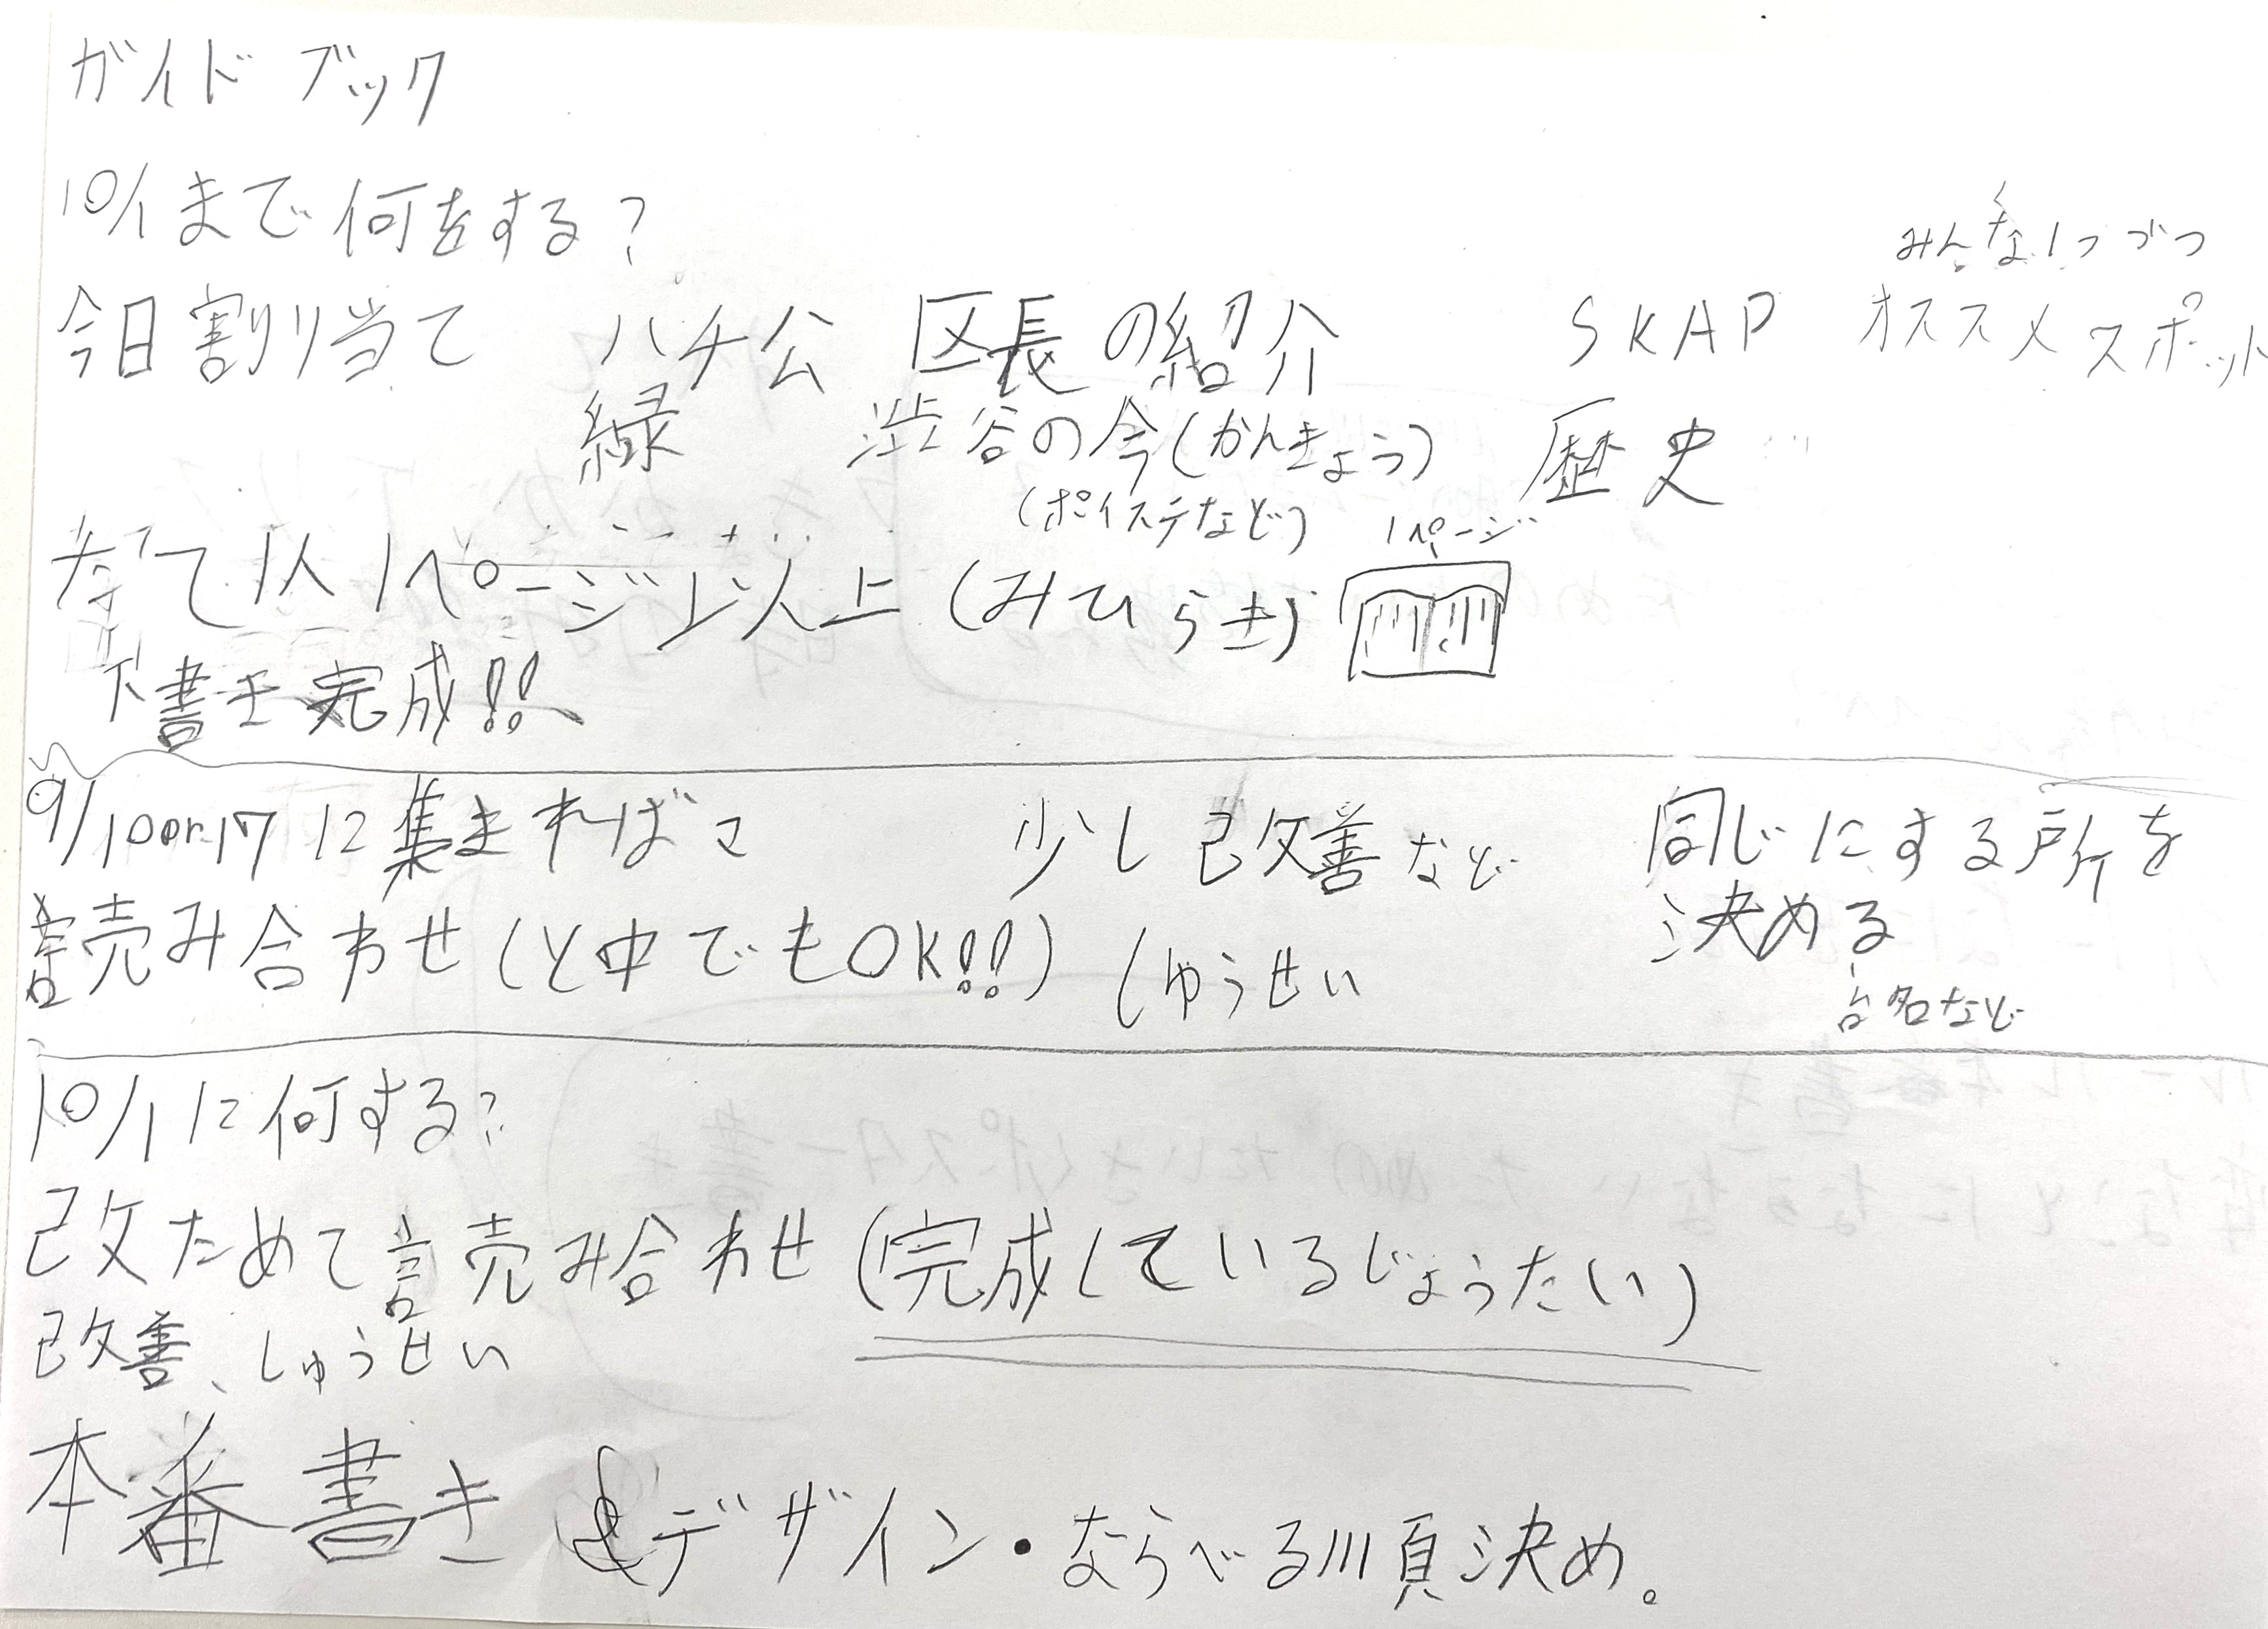 ガイドブック
10/1まで何をする?
みんな1つづつ
今日割り当て ハチ公 区長の紹介 SKAP オススメスポット
緑 渋谷の今(かんきょう) 歴史
(ポイステなど)
1ページ
1人1ページ以上(みひらき)
下書き完成!!
9/10or17に集まれば 少し改善など 同じにする所を
決める
読み合わせ(と中でもOK!!) しゅうせい
台名など
10/1に何する?
改ためて読み合わせ(完成しているじょうたい)
改善、しゅうせい
本番書き &デザイン・ならべる順決め。